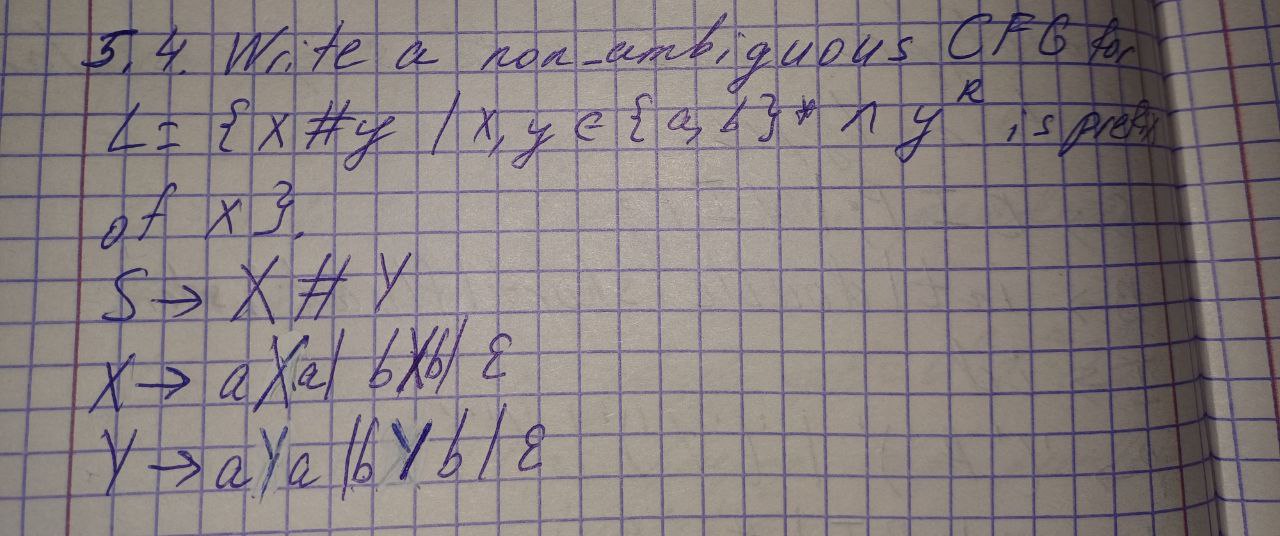 5.4. Write a non-ambiguous CFG for
L = {x#y | x, y ∈ {a, b}* ∧ y^R is prefix
of x}.
S → X # Y
X → aXa | bXb | ε
Y → aYa | bYb | ε